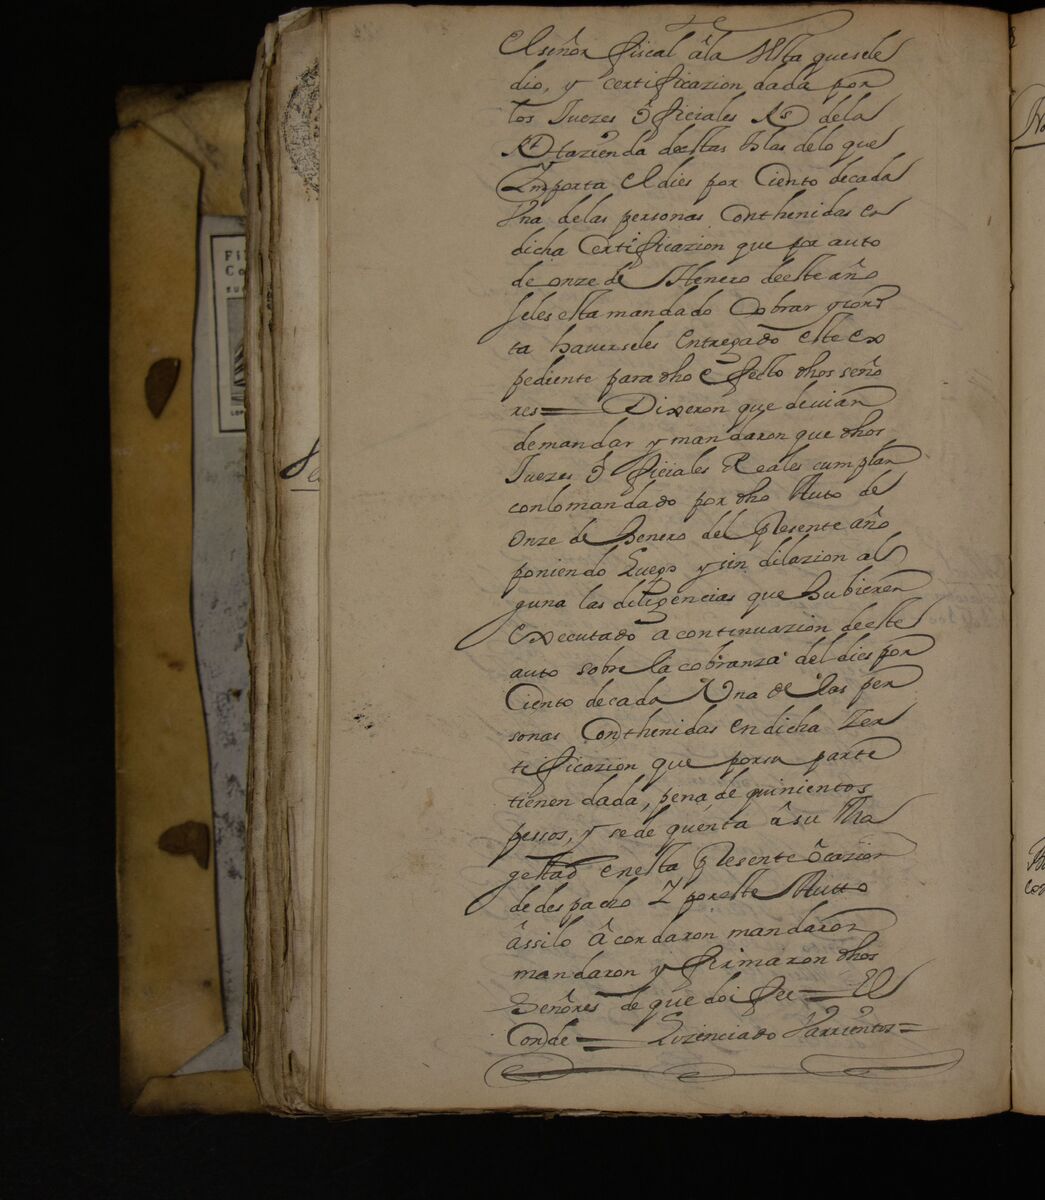 El señor fiscal â la Vista que se le
dio, y certificazion dada por
los Juezes ôficiales Rs. de la
Rl. Hazienda de estas Yslas de lo que
Ymporta El dies por Ciento de cada
Vna de las personas Conthenidas en
dicha Certificazion que por auto
de onze de Henero de este año
se les esta mandado Cobrar y cons
ta haverseles Entregado este ex
pediente para dho efecto dhos seño
res = Dixeron que devian
de mandar y mandaron que dhos
Juezes ôficiales Reales cumplan
con lo mandado por dho Auto de
Onze de Henero del Presente año
poniendo Luego y sin dilazion al
guna las diligencias que hubieren
Executado a continuazion de este
auto sobre la cobranza del dies por
Ciento de cada Una de las per
sonas Conthenidas en dicha Zer
tificazion que por su parte
tienen dada, pena de quinientos
pessos, y se de quenta â su Ma
gestad en esta Presente ôcazion
de despacho Y por este Autto
âssi lo âcordaron mandaron
mandaron y firmaron dhos
Señores de que doi fee = El
Conde = Lizenciado Varrientos =
Fi
Co